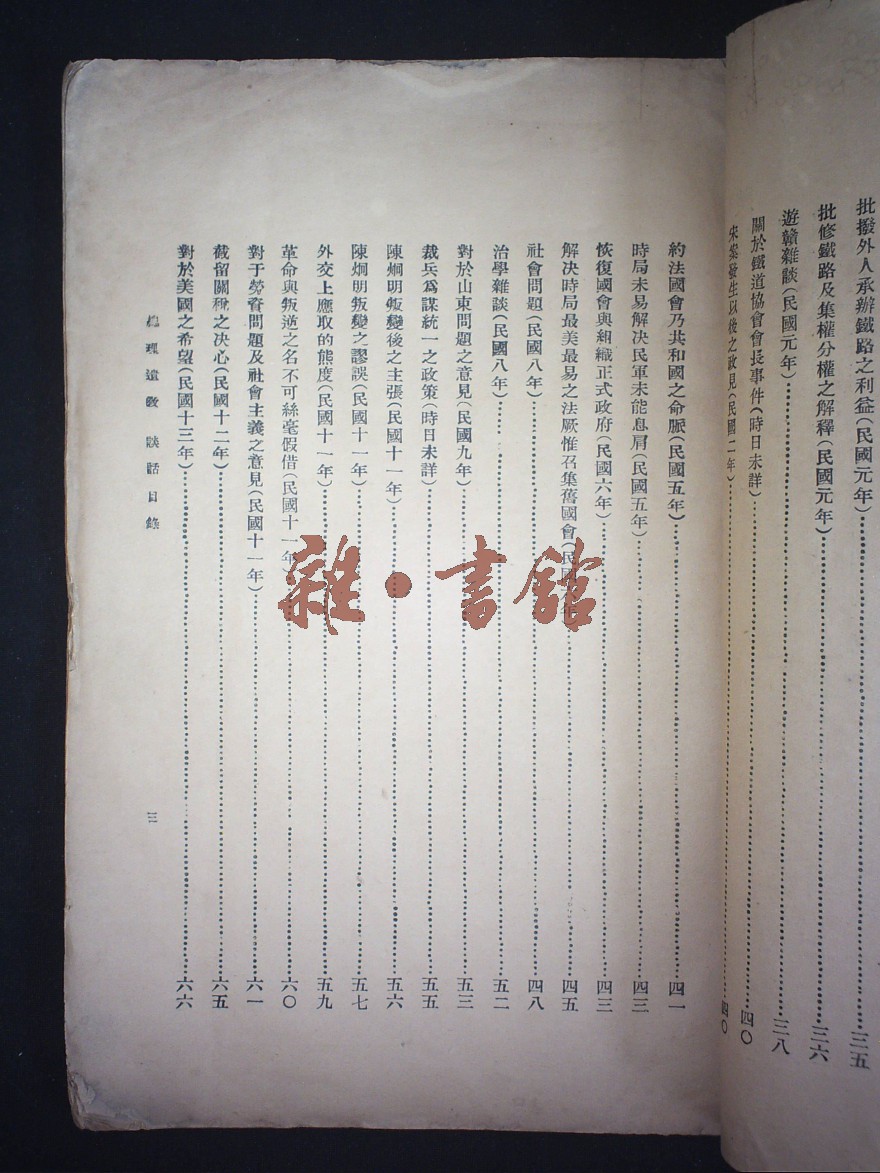 批撥外人承辦鐵路之利益（民國元年）……三五
批修鐵路及集權分權之解釋（民國元年）……三六
遊贛雜談（民國元年）……三八
關於鐵道協會會長事件（時日未詳）……四〇
宋案發生以後之政見（民國二年）……四〇
約法國會乃共和國之命脈（民國五年）……四一
時局未易解決民軍未能息肩（民國五年）……四三
恢復國會與組織正式政府（民國六年）……四三
解決時局最美最易之法厥惟召集舊國會（民國年）……四五
社會問題（民國八年）……四八
治學雜談（民國八年）……五二
對於山東問題之意見（民國九年）……五三
裁兵爲謀統一之政策（時日未詳）……五五
陳烱明叛變後之主張（民國十一年）……五六
陳烱明叛變之謬誤（民國十一年）……五七
外交上應取的態度（民國十一年）……五九
革命與叛逆之名不可絲毫假借（民國十一年）……六〇
對于勞資問題及社會主義之意見（民國十一年）……六一
截留關稅之決心（民國十二年）……六五
對於美國之希望（民國十三年）……六六
總理遺敎 談話目錄 三
雜·書館